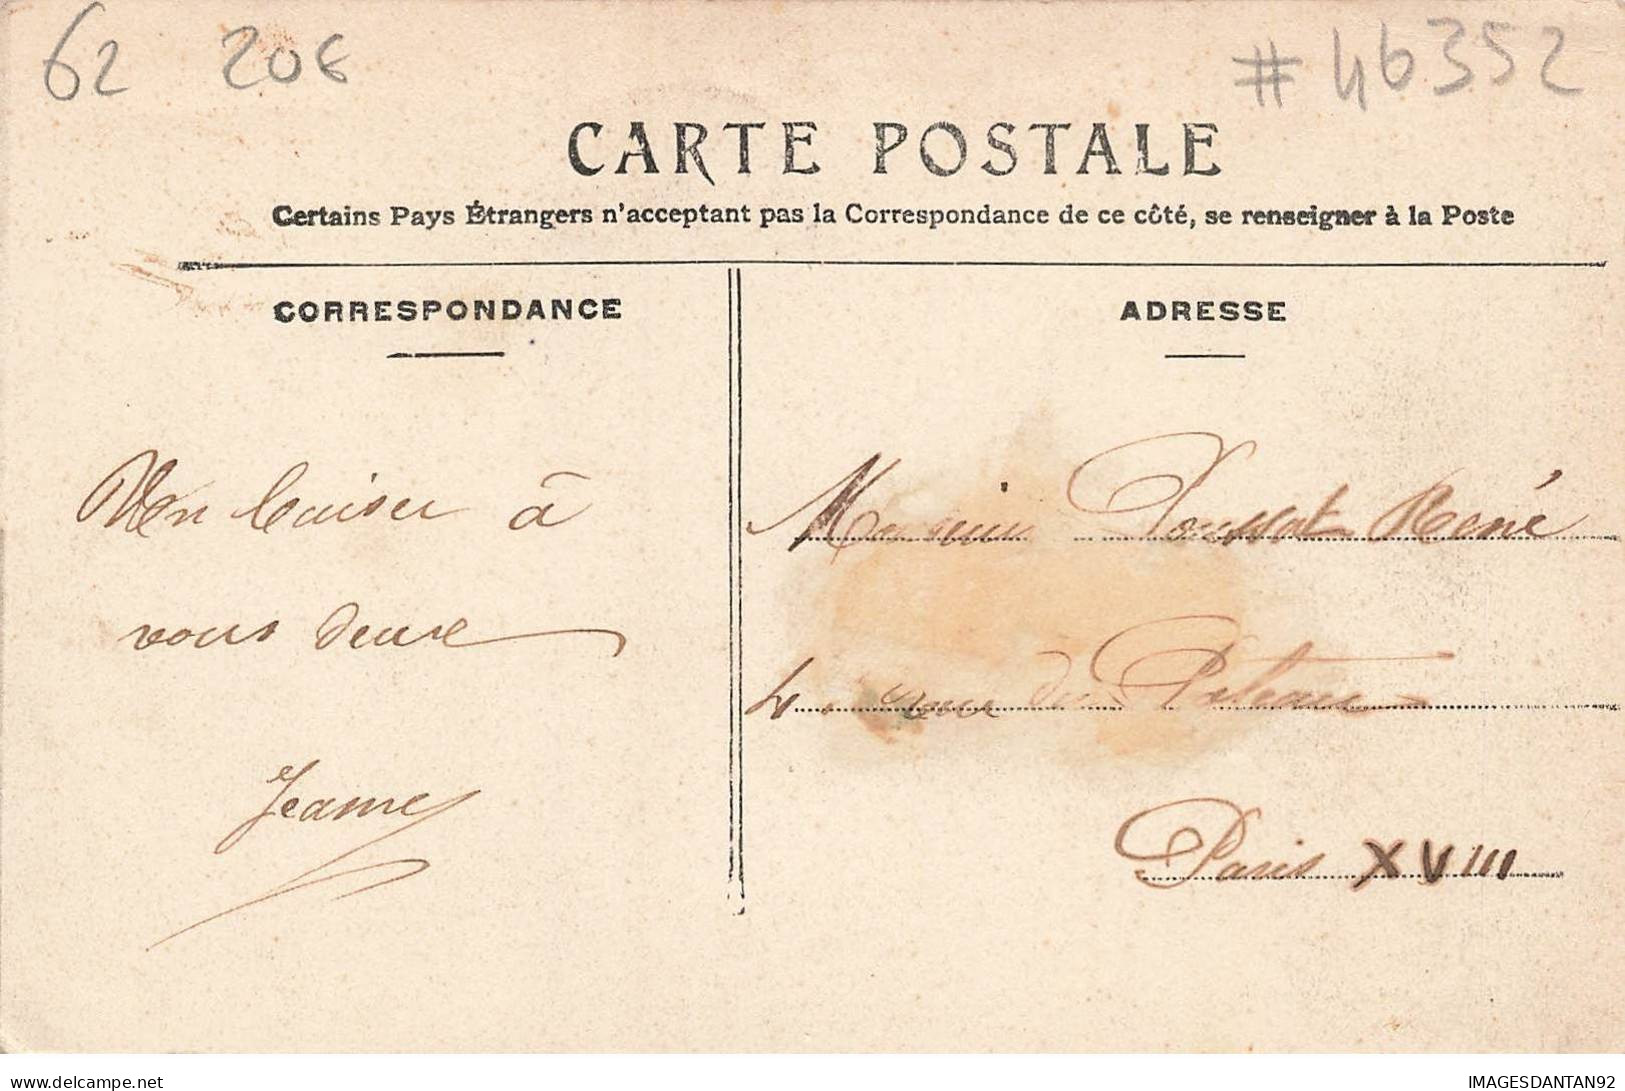 62 20€ #46352
CARTE POSTALE
Certains Pays Étrangers n'acceptant pas la Correspondance de ce côté, se renseigner à la Poste
CORRESPONDANCE
ADRESSE
Un baiser à
vous deux
Jeanne
Monsieur René
4, rue du
Paris XVIII
delcampe.net
IMAGESDANTAN92